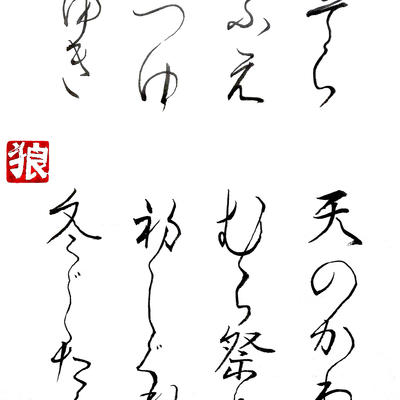 そら
ふえ
つゆ
ゆき
天のかわ
むら祭
初しぐれ
冬じた
狼